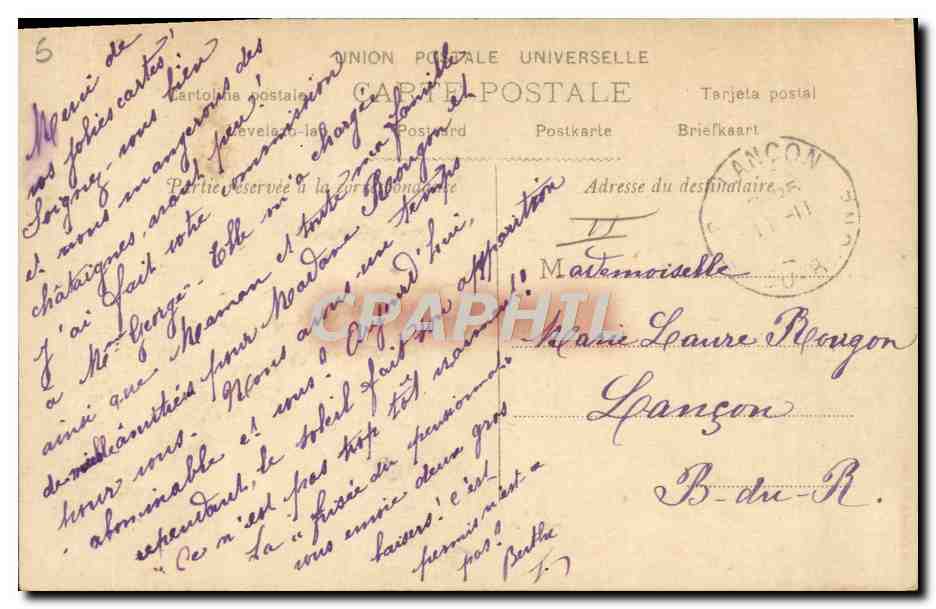 5
UNION POSTALE UNIVERSELLE
CARTE POSTALE
Cartolina postale
Tarjeta postal
Levelezo-lap
Postcard
Postkarte
Briefkaart
Partie réservée à la correspondance
Adresse du destinataire
LANÇON
11-11
08
Merci de
vos jolies cartes!
Soignez-vous bien
et nous mangerons des
châtaignes, sous peu!
J'ai fait votre commission
à Mme George. Elle m'a chargée
ainsi que Maman et toute ma famille
de mille amitiés pour Madame Rougon et
pour vous. Nous avons un temps
abominable et vous? Aujourd'hui,
cependant, le soleil fait son apparition
"Ce n'est pas trop tôt vraiment!
La "fusée du pensionnat"
vous envoie deux gros
baisers! c'est
permis n'est-ce
pas?
Berthe
II
Mademoiselle
Marie Laure Rougon
Lançon
B-du-R.
CPARAPHIL